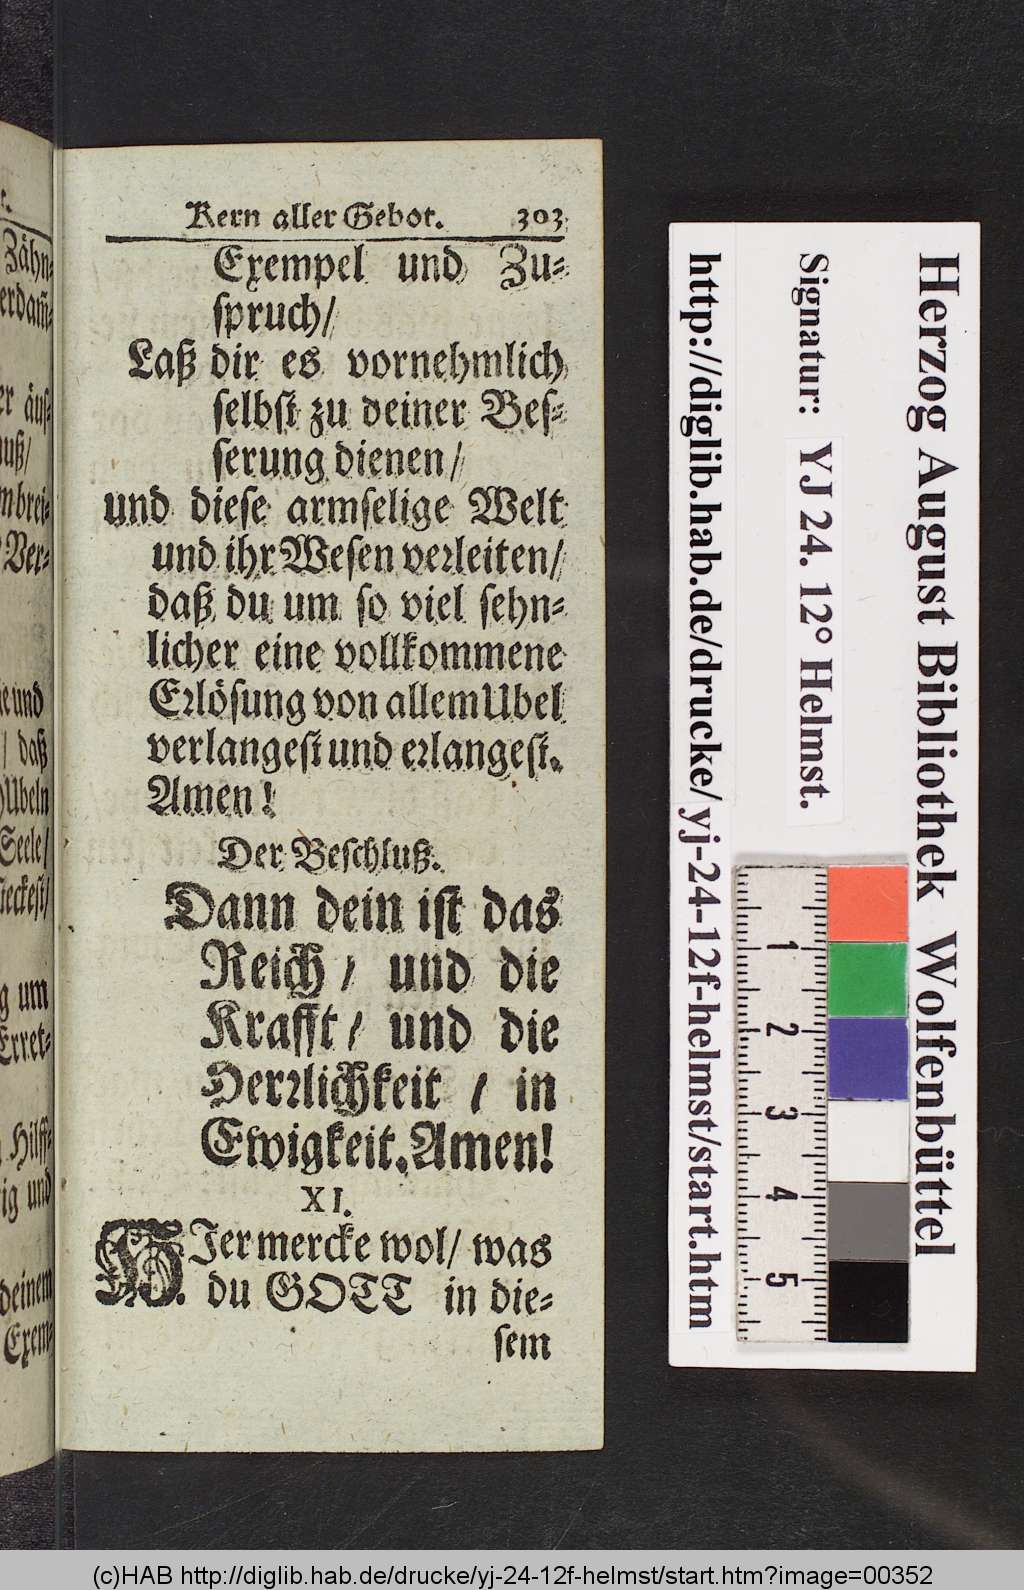 Kern aller Gebot. 303
Exempel und Zu⸗
spruch/
Laß dir es vornehmlich
selbst zu deiner Bes⸗
serung dienen/
und diese armselige Welt
und ihr Wesen verleiten/
daß du um so viel sehn⸗
licher eine vollkommene
Erlösung von allem Ubel
verlangest und erlangest.
Amen!
Der Beschluß.
Dann dein ist das
Reich/ und die
Krafft/ und die
Herrlichkeit / in
Ewigkeit. Amen!
XI.
HJer mercke wol/ was
du GOTT in die⸗
sem
Zähn⸗
erdam̃⸗
er äus⸗
uß/
mbrei⸗
Ver⸗
ie und
/ daß
Ubeln
Seele/
steckest/
g um
Erret⸗
Hilff⸗
ig und
deinem
Exem⸗
Herzog August Bibliothek Wolfenbüttel
Signatur: YJ 24. 12° Helmst.
http://diglib.hab.de/drucke/yj-24-12f-helmst/start.htm
1
2
3
4
5
(c)HAB http://diglib.hab.de/drucke/yj-24-12f-helmst/start.htm?image=00352